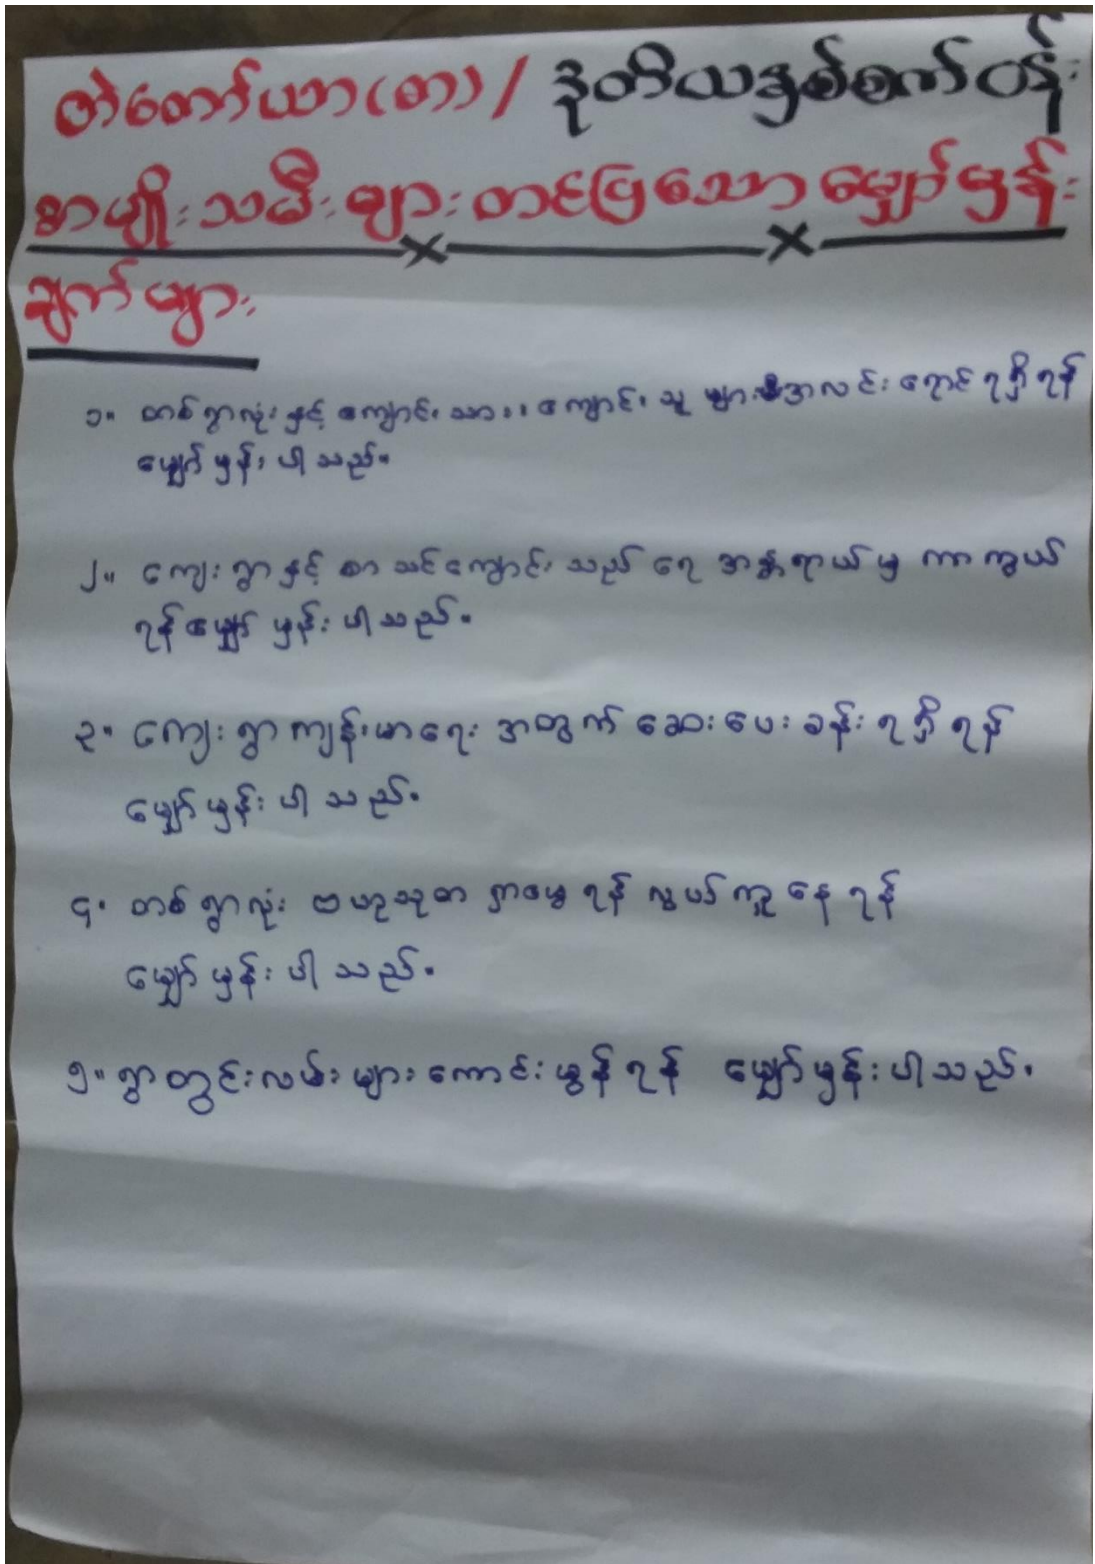 ဇဲတော်ယာ(စာ)/ဒုတိယနှစ်စက်ဝန်း
ရွာမျိုးသမီးများတင်ပြသောမျှော်မှန်း
ချက်များ
၁။ တစ်ရွာလုံးနှင့် ကျောင်းသား၊ ကျောင်းသူများမီးအလင်းရောင်ရရှိရန်
မျှော်မှန်းပါသည်။
၂။ ကျေးရွာနှင့် စာသင်ကျောင်းသည် ရေအန္တရာယ်မှ ကာကွယ်
ရန်မျှော်မှန်းပါသည်။
၃။ ကျေးရွာကျန်းမာရေးအတွက် ဆေးပေးခန်းရရှိရန်
မျှော်မှန်းပါသည်။
၄။ တစ်ရွာလုံး ဗဟုသုတ ရှာမွေရန် လွယ်ကူနေရန်
မျှော်မှန်းပါသည်။
၅။ ရွာတွင်းလမ်းများကောင်းမွန်ရန် မျှော်မှန်းပါသည်။